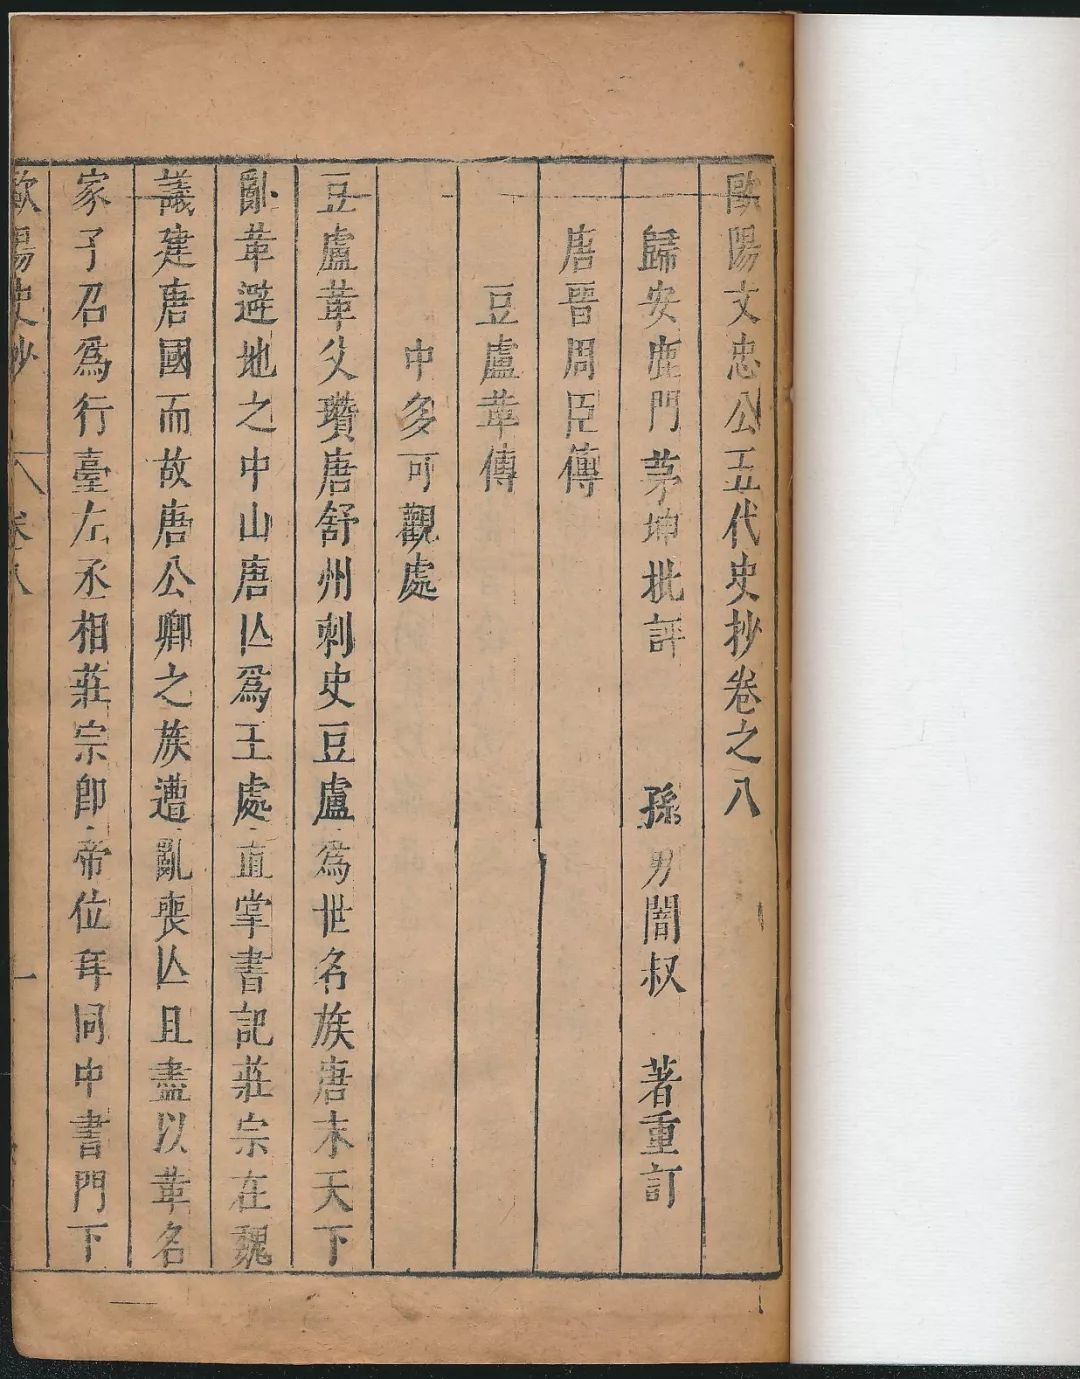 歐陽文忠公五代史抄卷之八
歸安鹿門茅坤批評 孫男闇叔 著重訂
唐晋周臣傳
豆盧革傳
中多可觀處
豆盧革父瓚唐舒州刺史豆盧爲世名族唐末天下
亂革避地之中山唐亾爲王處直掌書記莊宗在魏
議建唐國而故唐公卿之族遭亂喪亾且盡以革名
家子召爲行臺左丞相莊宗卽帝位拜同中書門下
歐陽史抄 卷八 一